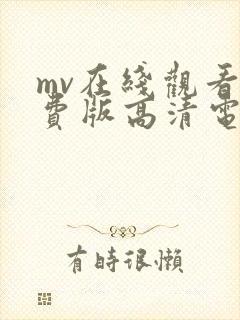 mv在綫觀看
費版高清電
有時很懶